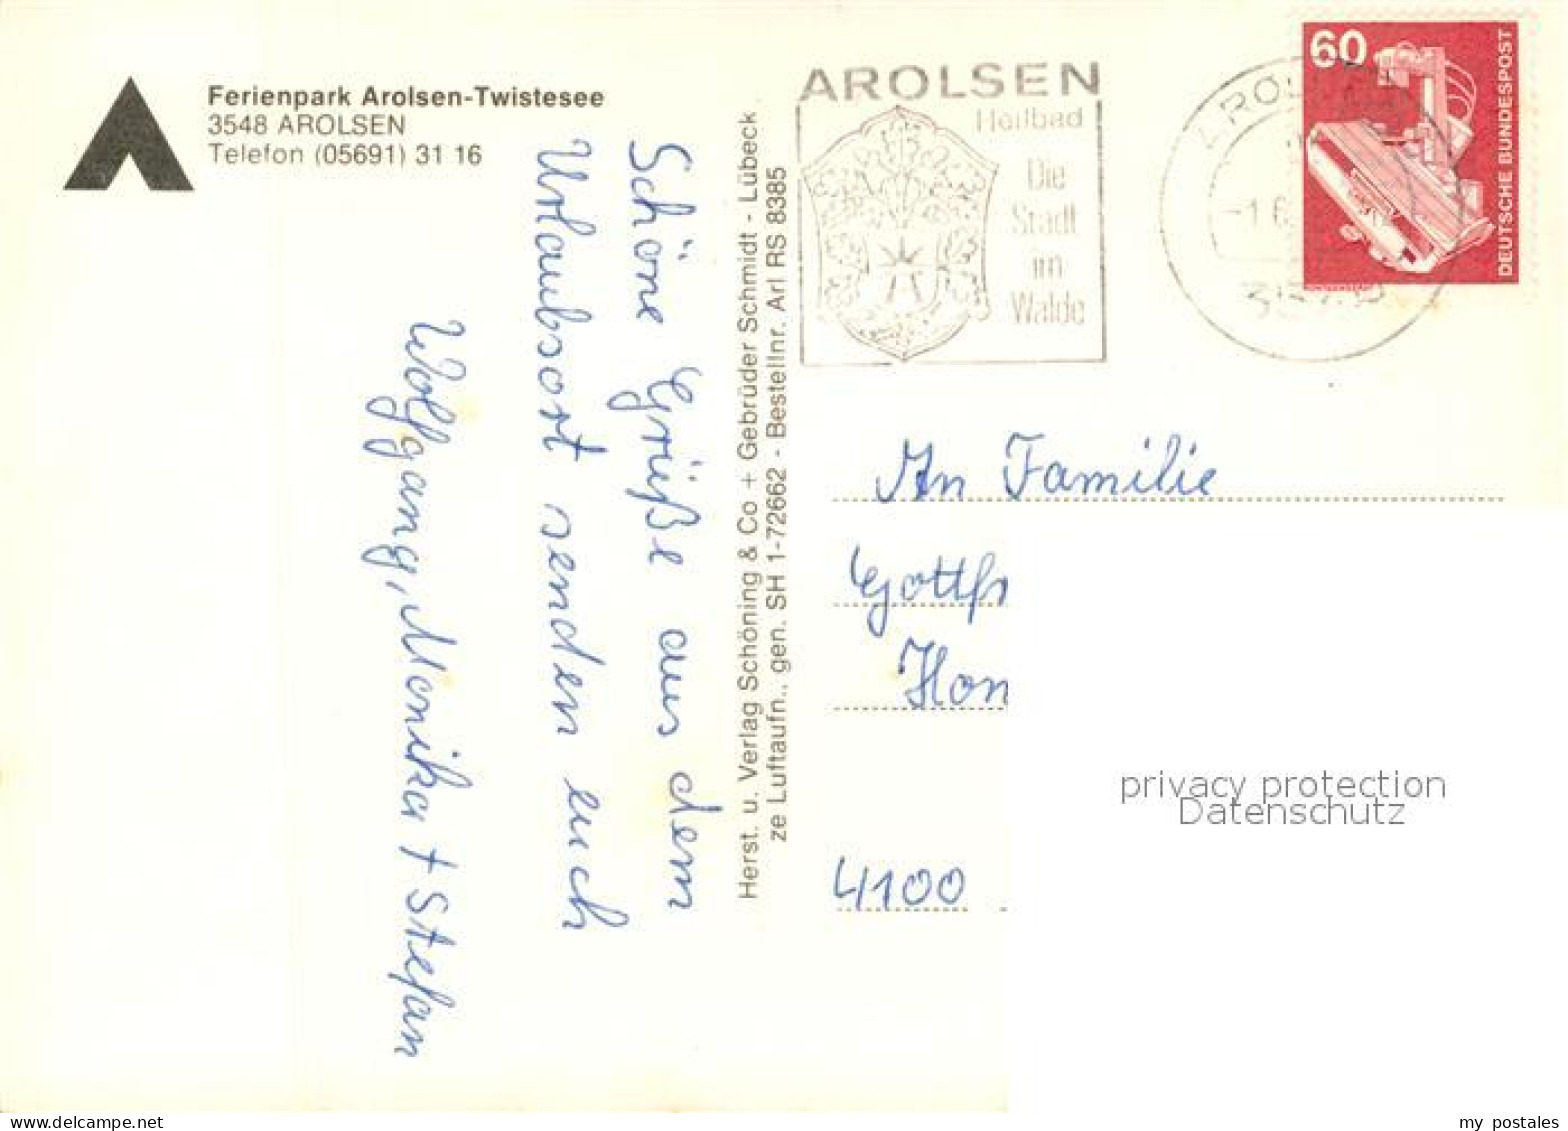 Ferienpark Arolsen-Twistesee
3548 AROLSEN
Telefon (05691) 31 16
Schöne Grüße aus dem
Urlaubsort senden euch
Wolfgang, Monika + Stefan
Herst. u. Verlag Schöning & Co + Gebrüder Schmidt - Lübeck
ze Luftaufn., gen. SH 1-72662 - Bestellnr. Arl RS 8385
AROLSEN
Heilbad
Die
Stadt
im
Walde
60
DEUTSCHE BUNDESPOST
An Familie
4100
privacy protection
Datenschutz
my postales